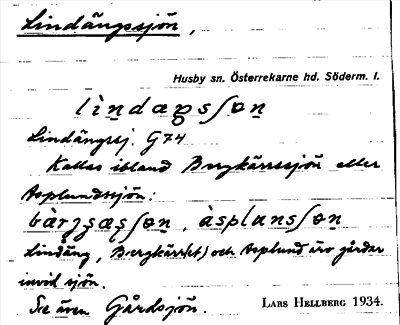 Lindängssjön,
Husby sn. Österrekarne hd. Söderm. l.
lìndæŋsʃøn
Lindängssj. G74
Kallas ibland Bergkärrssjön eller
Asplundssjön:
bàrʒʂæʂʃøn, àsplansʃøn
Lindäng, Bergkärr(et) och Asplund äro gårdar
invid sjön.
Se även Gårdsjön.
LARS HELLBERG 1934.